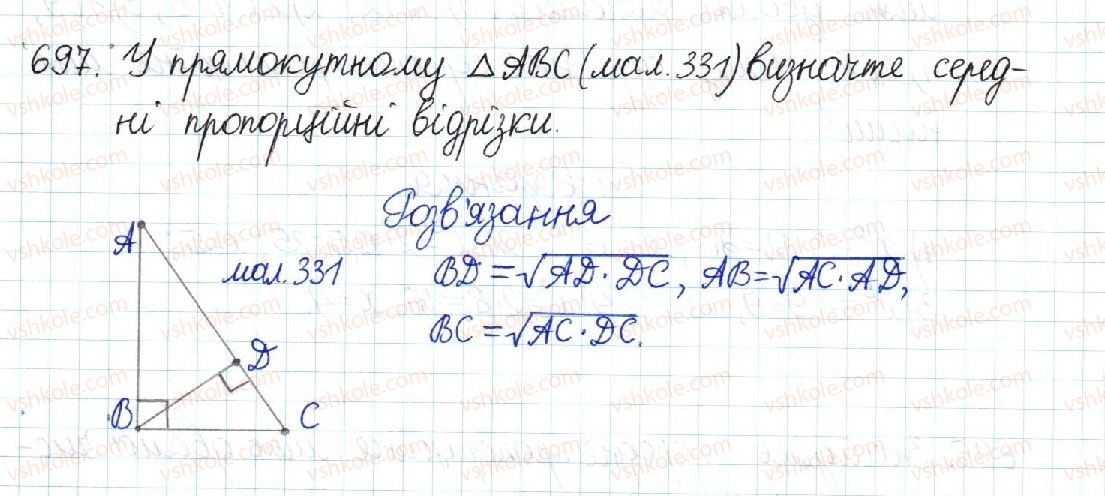 697. У прямокутному △ABC (мал. 331) визначте серед-
ні пропорційні відрізки.
Розв'язання
A
мал. 331
BD = √AD · DC, AB = √AC · AD,
BC = √AC · DC.
D
B
C